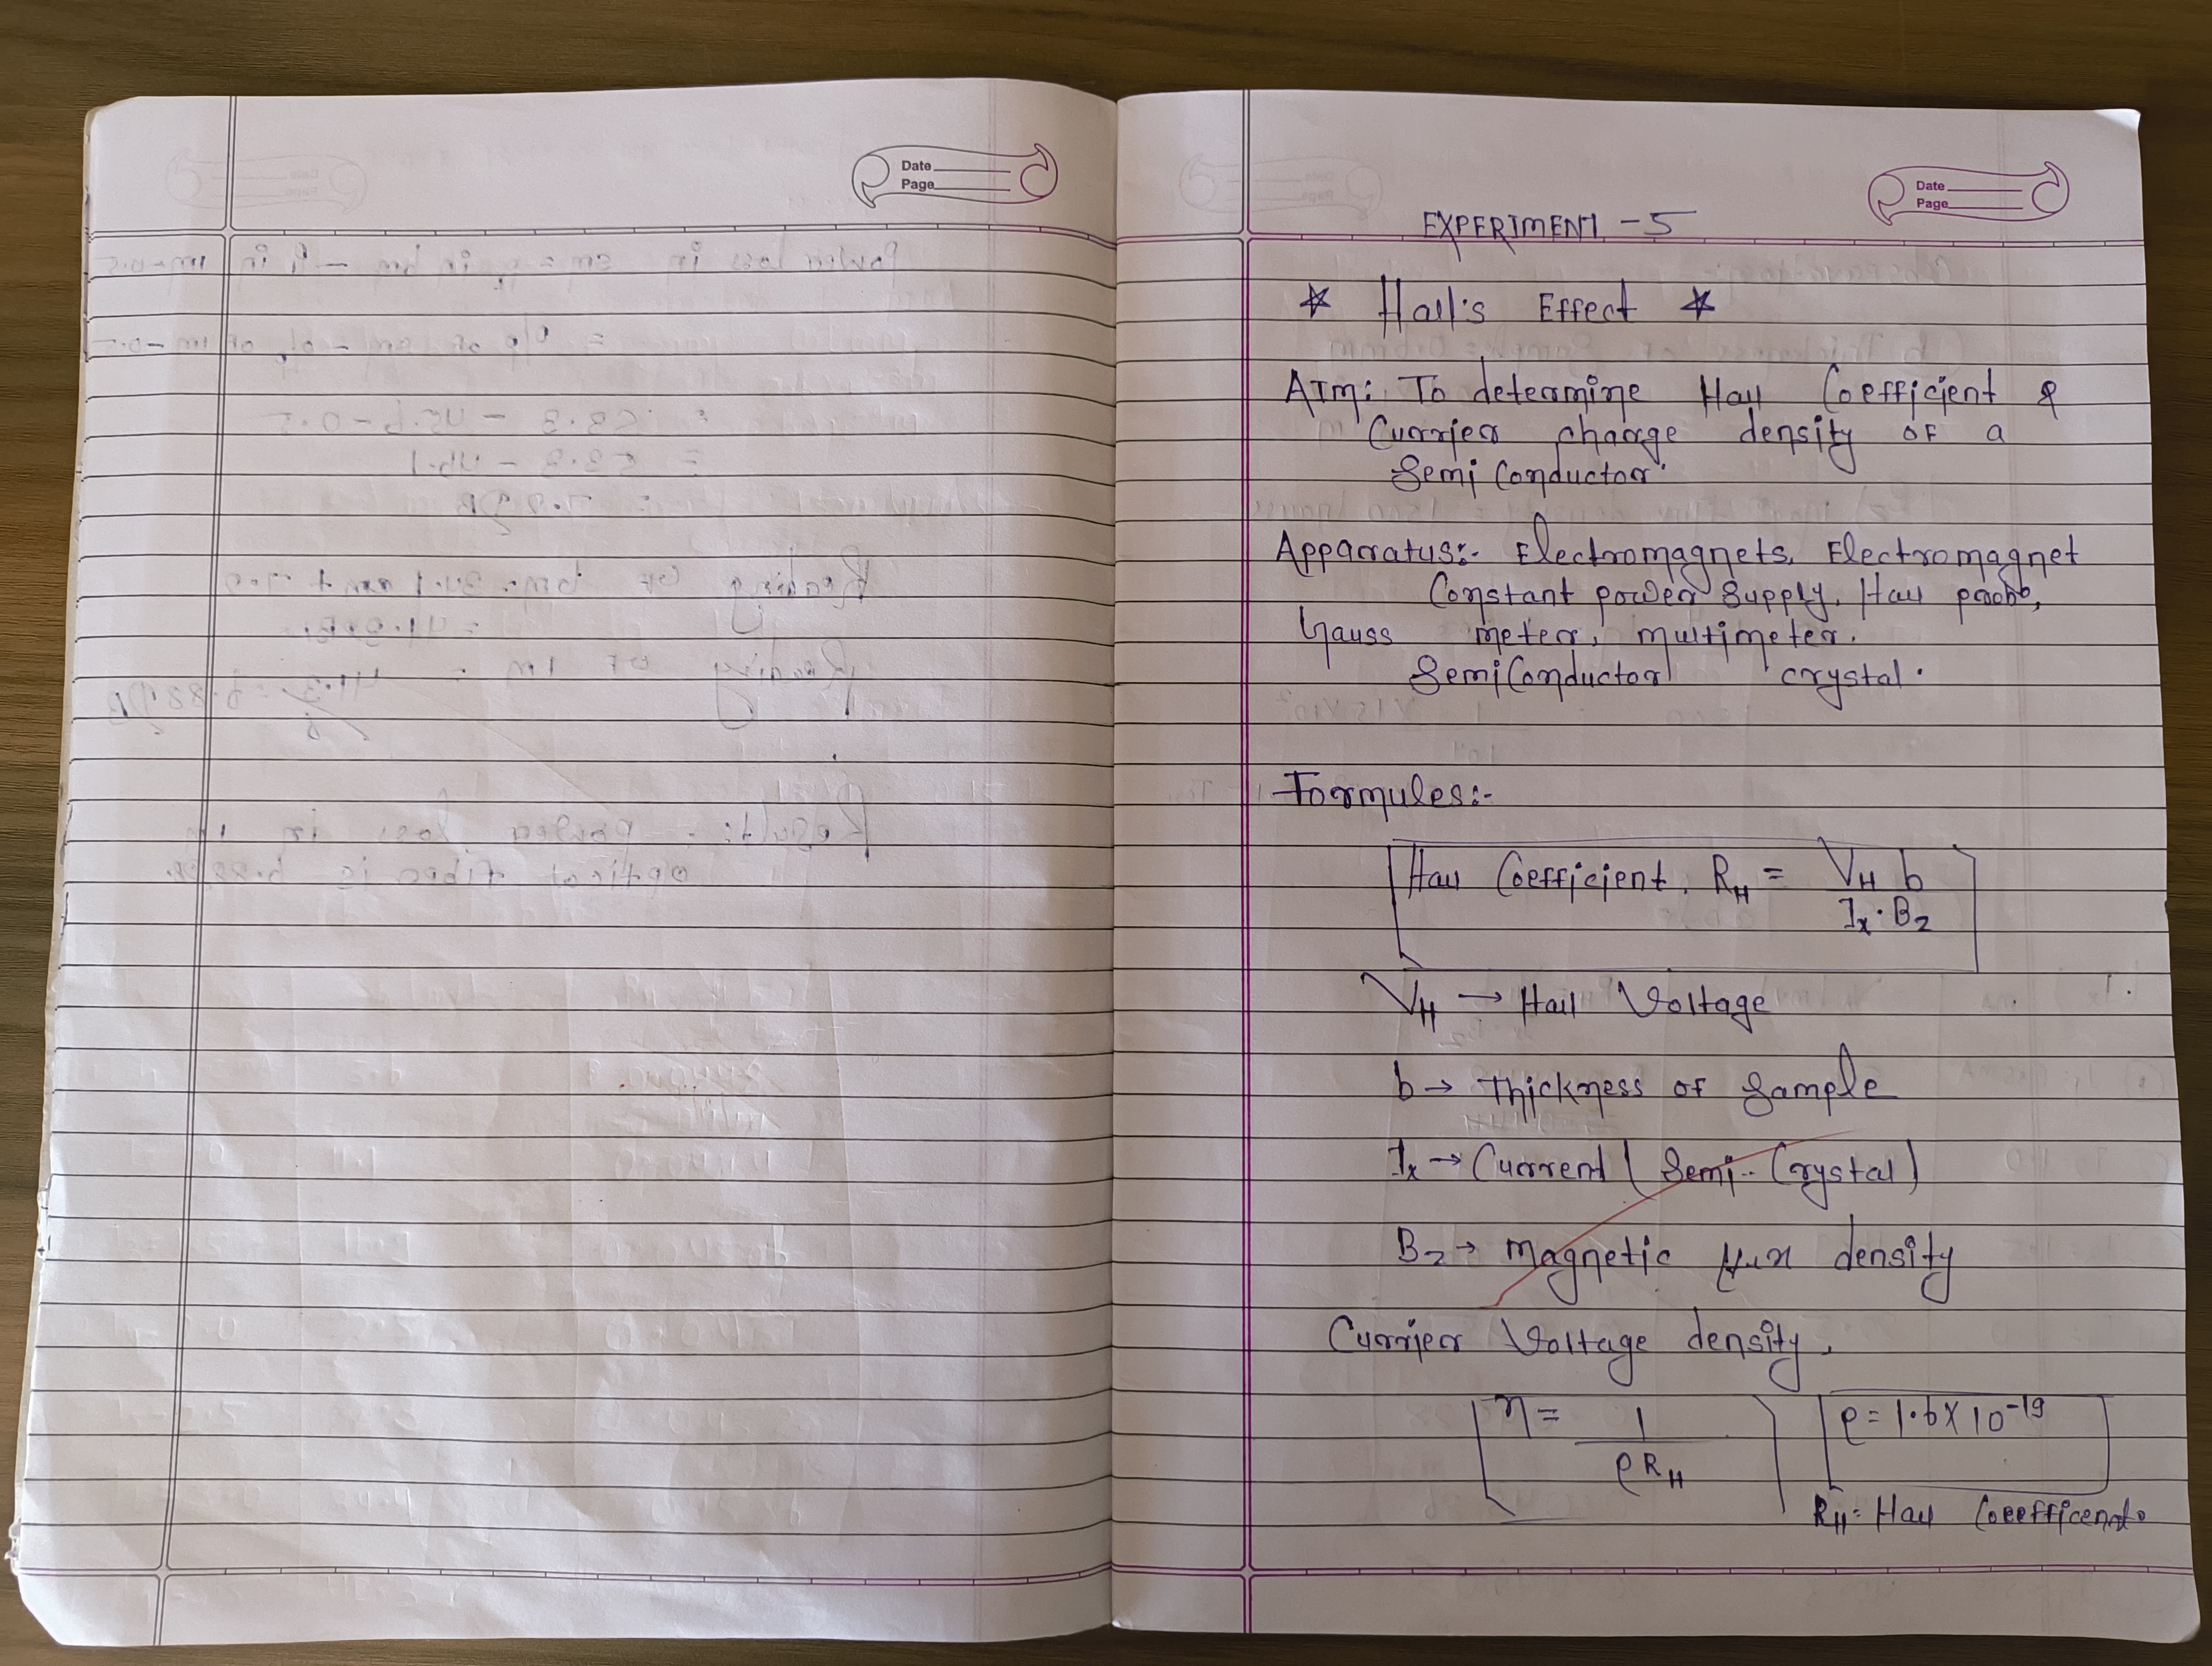 Date
Page
Date
Page
EXPERIMENT - 5
* Hall's Effect *
AIM: To determine Hall Coefficient &
Currier charge density OF a
Semi Conductor.
Apparatus:- Electromagnets, Electromagnet
Constant power supply, Hall probe,
Gauss meter, multimeter.
SemiConductor crystal.
Formules:-
Hall Coefficient, R_H = V_H b / I_x · B_z
V_H → Hall Voltage
b → Thickness of Sample
I_x → Current ( Semi-- Crystal )
B_z → Magnetic flux density
Currier Voltage density,
η = 1 / e R_H
e = 1.6 X 10^-19
R_H = Hall